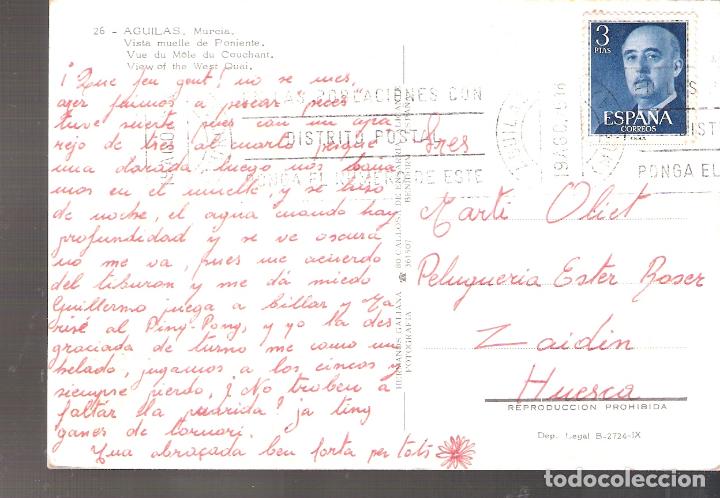 26 - AGUILAS, Murcia.
Vista muelle de Poniente.
Vue du Môle du Couchant.
View of the West Quai.
¡Que feu gent! no se mes,
ayer fuimos a pescar peces
tuve suerte pues con un apa
rejo de tres al cuarto pesqué
una dorada, luego nos baña
mos en el muelle, y se hizo
de noche, el agua cuando hay
profundidad y se ve oscura
no me va, pues me acuerdo
del tiburon y me dá miedo
Guillermo juega a billar y Ma
risé al Ping-Pong, y yo la des
graciada de turno me como un
helado, jugamos a los cincos y
siempre pierdo, ¿No troben a
faltar lla querida? ja ting
ganes de tornari.
Una abraçada ben forta per tots
HERMANOS GALIANA
FOTOGRAFIA
3
PTAS
ESPAÑA
CORREOS
LAS POBLACIONES CON
DISTRITO POSTAL
PONGA EL NUMERO DE ESTE
DIST
PONGA EL
Sres
Marti Oliet
Peluqueria Ester Roser
Zaidin
Huesca
REPRODUCCION PROHIBIDA
Dep. Legal B-2724-IX
todocoleccion.net